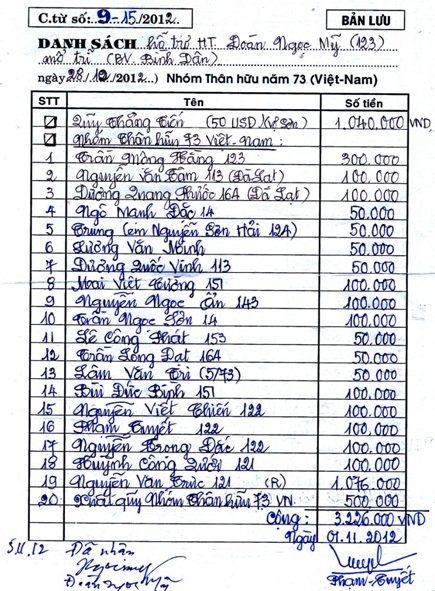 C.từ số: 9-15/2012.
BẢN LƯU
DANH SÁCH hỗ trợ HT. Đoàn Ngọc Mỹ (123)
mổ trĩ (BV. Bình Dân)
ngày 28/12/2012..) Nhóm Thân hữu năm 73 (Việt-Nam)
STT Tên Số tiền
Quỹ Thắng Tiến (50 USD 1.040.000 VND
Nhóm Thân hữu 73 Việt-Nam:
1 Trần Mộng Hằng 123 300.000
2 Nguyễn Văn Tâm 113 (Đà Lạt) 100.000
3 Dương Quang Phước 16A (Đà Lạt) 100.000
4 Ngô Mạnh Đắc 14 50.000
5 Trung (em Nguyễn Sơn Hải 12A) 50.000
6 Lương Văn Minh 50.000
7 Dương Quốc Vinh 113 50.000
8 Mai Viết Tường 151 100.000
9 Nguyễn Ngọc Ẩn 143 100.000
10 Trần Ngọc Sơn 14 100.000
11 Lê Công Phát 153 50.000
12 Trần Long Đạt 16A 50.000
13 Lâm Văn Trí (5/73) 50.000
14 Bùi Đức Bình 151 100.000
15 Nguyễn Viết Chiến 122 100.000
16 Phạm Tuyết 122 100.000
17 Nguyễn Trọng Đắc 122 100.000
18 Huỳnh Công Dưỡi 121 100.000
19 Nguyễn Văn Trúc 121 (R) 1.076.000
20 Xuất quỹ Nhóm Thân hữu 73 VN. 500.000
Cộng: 3.226.000 VND
Ngày 01.11.2012
5.11.12 Đã nhận
Đoàn Ngọc Mỹ
Phạm-Tuyết